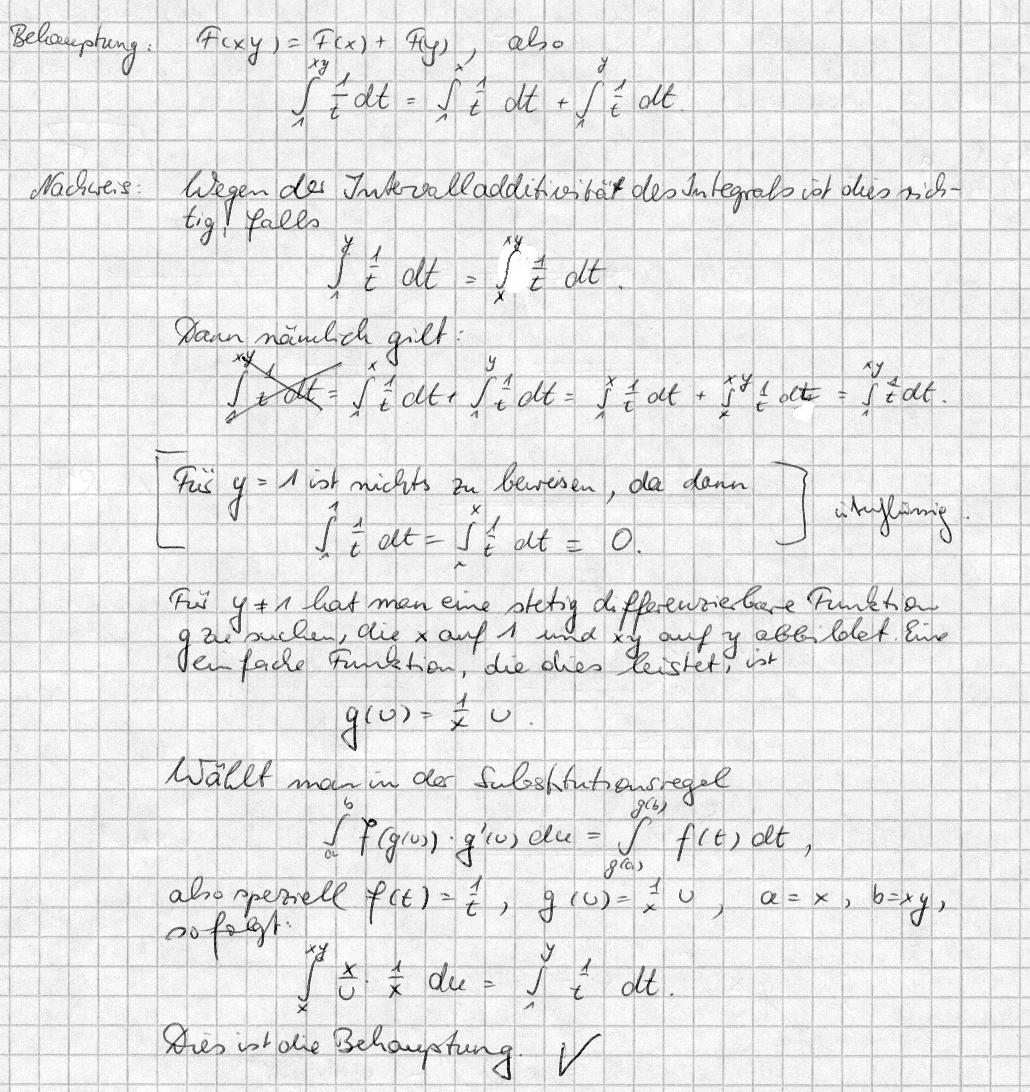 Behauptung: F(xy) = F(x) + F(y), also
∫₁^{xy} 1/t dt = ∫₁^{x} 1/t dt + ∫₁^{y} 1/t dt.
Nachweis: Wegen der Intervalladditivität des Integrals ist dies rich-
tig, falls
∫₁^{y} 1/t dt = ∫ₓ^{xy} 1/t dt.
Dann nämlich gilt:
∫₁^{xy} 1/t dt = ∫₁^{x} 1/t dt + ∫₁^{y} 1/t dt = ∫₁^{x} 1/t dt + ∫ₓ^{xy} 1/t dt = ∫₁^{xy} 1/t dt.
[Für y = 1 ist nichts zu beweisen, da dann
∫₁^{1} 1/t dt = ∫ₓ^{x} 1/t dt = 0.] überflüssig.
Für y ≠ 1 hat man eine stetig differenzierbare Funktion
g zu suchen, die x auf 1 und xy auf y abbildet. Eine
einfache Funktion, die dies leistet, ist
g(u) = 1/x u.
Wählt man in der Substitutionsregel
∫ₐ^{b} f(g(u)) · g'(u) du = ∫_{g(a)}^{g(b)} f(t) dt,
also speziell f(t) = 1/t, g(u) = 1/x u, a = x, b = xy,
so folgt:
∫ₓ^{xy} x/u · 1/x du = ∫₁^{y} 1/t dt.
Dies ist die Behauptung. √